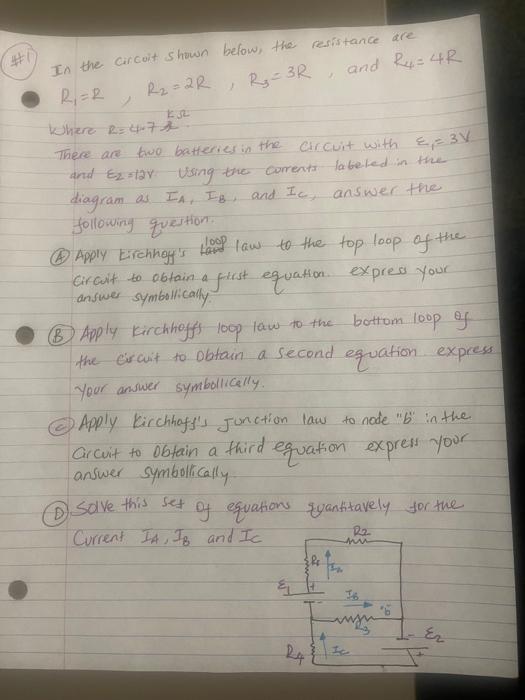 #1 In the circuit shown below, the resistance are
R₁=R , R₂=2R , R₃=3R , and R₄=4R
Where R=4.7 kΩ
There are two batteries in the circuit with ε₁=3V
and ε₂=12V. Using the currents labeled in the
diagram as IA, IB, and IC, answer the
following question.
(A) Apply Kirchhoff's loop law to the top loop of the
circuit to obtain a first equation. express your
answer symbollically.
(B) Apply Kirchhoffs loop law to the bottom loop of
the circuit to obtain a second equation express
your answer symbollically.
(C) Apply Kirchhoff's junction law to node "b" in the
circuit to obtain a third equation express your
answer symbollically
(D) Solve this set of equations quantitavely for the
Current IA, IB and IC
R₂
R₁
IA
ε₁
+
-
IB
"b"
R₃
- ε₂
+
R₄
IC